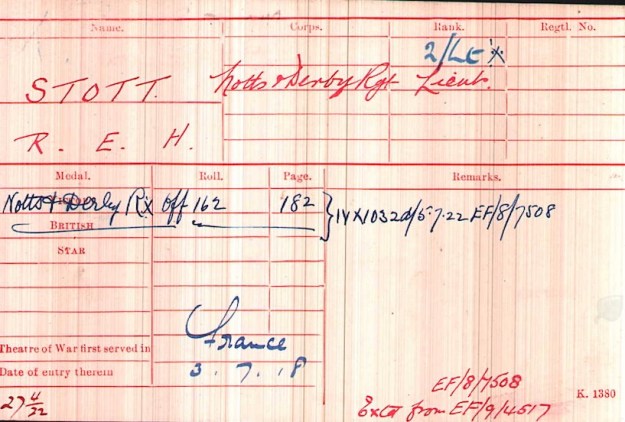 Name. Corps. Rank. Regtl. No.
2/Lt x
STOTT. Notts & Derby Rgt Lieut.
R. E. H.
Medal. Roll. Page. Remarks.
Notts & Derby R x Off 162 182 } IV X/1032 d/5.7.22 EF/8/7508
BRITISH
STAR
Theatre of War first served in France
Date of entry therein 3.7.18
EF/8/7508
K. 1380
27 4/22 Extd from EF/9/4517